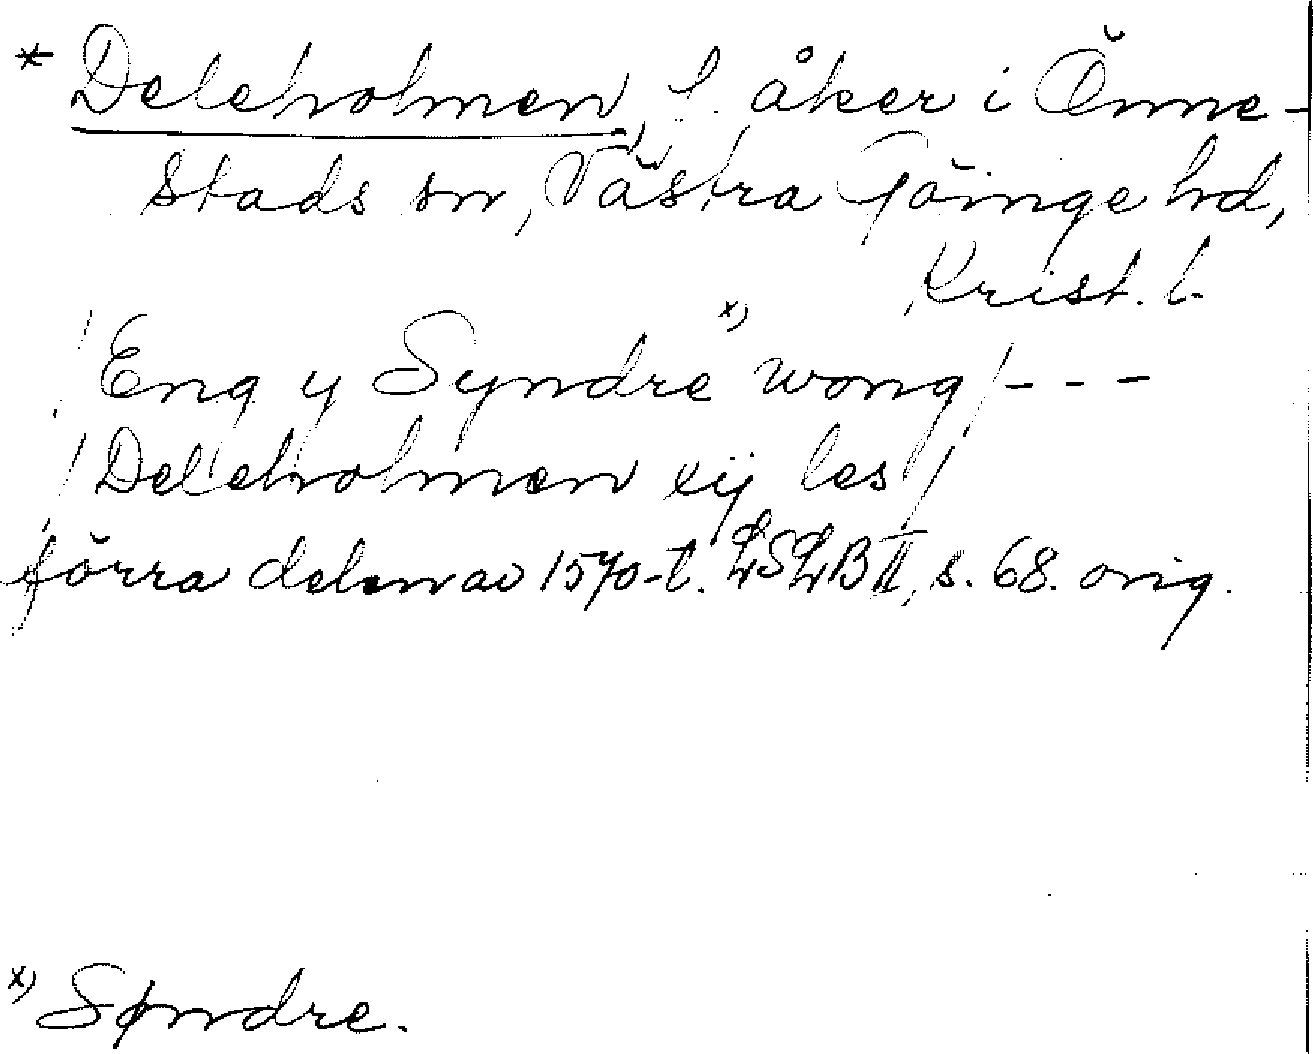 * Deleholmen, f. åker i Önne-
stads sn, Västra Göinge hd,
Krist. l.
/ Eng y Syndre x) wong / - - -
/ Deleholmen xij les /
förra delen av 1570-t. LSLB II, s. 68. orig.
x) Søndre.